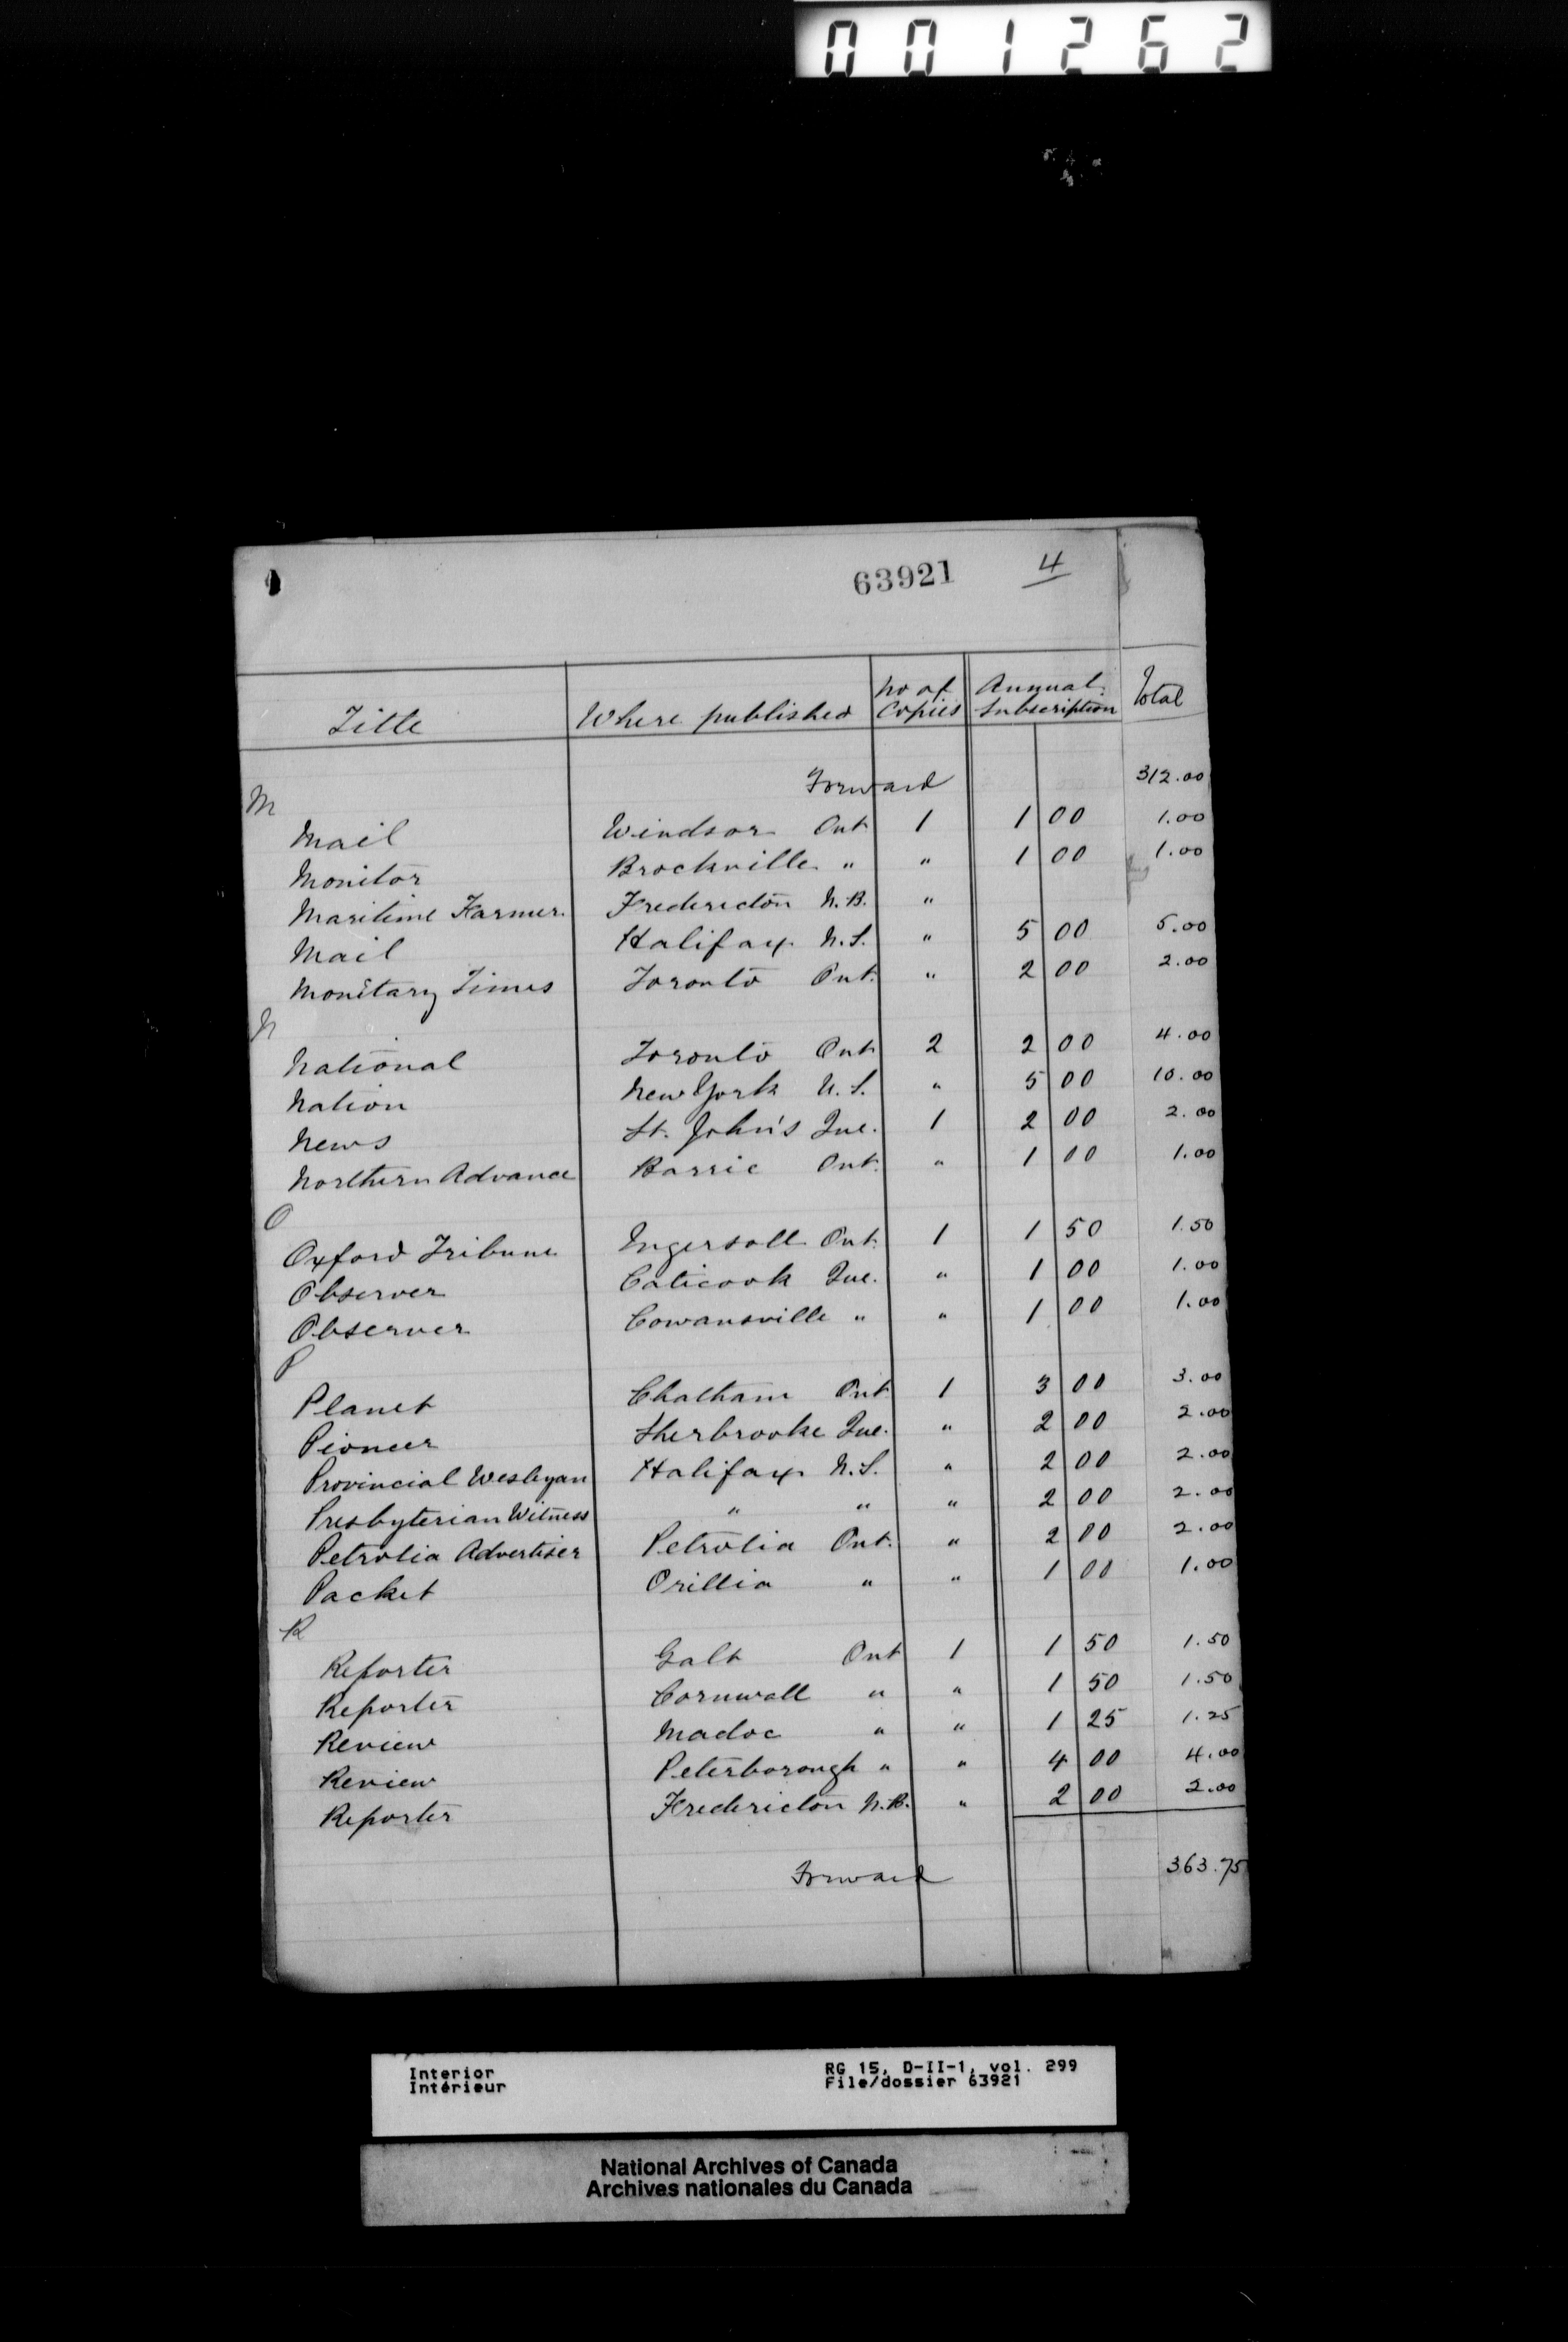 001262
63921 4
Title Where published No of Copies Annual Subscription Total
Forward 312.00
M
Mail Windsor Ont 1 1 00 1.00
Monitor Brockville " " 1 00 1.00
Maritime Farmer Fredericton N.B. "
Mail Halifax N.S. " 5 00 5.00
Monetary Times Toronto Ont. " 2 00 2.00
N
National Toronto Ont 2 2 00 4.00
Nation New York U.S. " 5 00 10.00
News St. John's Que. 1 2 00 2.00
Northern Advance Barrie Ont. " 1 00 1.00
O
Oxford Tribune Ingersoll Ont. 1 1 50 1.50
Observer Coticook Que. " 1 00 1.00
Observer Cowansville " " 1 00 1.00
P
Planet Chatham Ont 1 3 00 3.00
Pioneer Sherbrooke Que. " 2 00 2.00
Provincial Wesleyan Halifax N.S. " 2 00 2.00
Presbyterian Witness " " " 2 00 2.00
Petrolia Advertiser Petrolia Ont. " 2 00 2.00
Packet Orillia " " 1 00 1.00
R
Reporter Galt Ont 1 1 50 1.50
Reporter Cornwall " " 1 50 1.50
Review Madoc " " 1 25 1.25
Review Peterborough " " 4 00 4.00
Reporter Fredericton N.B. " 2 00 2.00
Forward 363.75
Interior RG 15, D-II-1, vol. 299
Intérieur File/dossier 63921
National Archives of Canada
Archives nationales du Canada